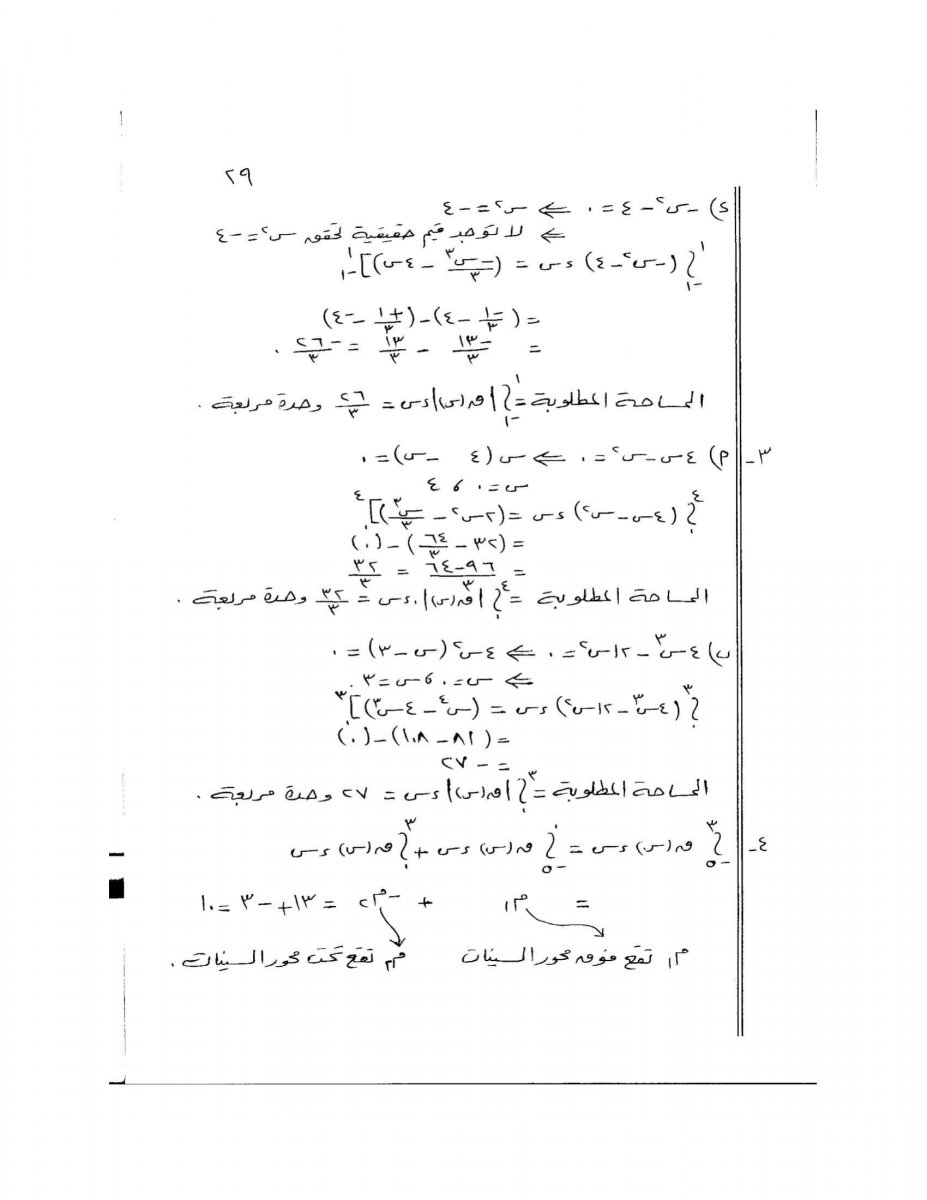 ٢٩
د) -س٢ - ٤ = ٠ ⇐ س٢ = -٤
⇐ لا توجد قيم حقيقية تحقق س٢ = -٤
∫_{-١}^{١} (-س٢ - ٤) ءس = (-س٣/٣ - ٤س)]_{-١}^{١}
= (-١/٣ - ٤) - (+١/٣ - -٤)
= -١٣/٣ - ١٣/٣ = -٢٦/٣ .
المساحة المطلوبة = ∫_{-١}^{١} |ق(س)| ءس = ٢٦/٣ وحدة مربعة .
٣- م) ٤س - س٢ = ٠ ⇐ س (٤ - س) = ٠
س = ٠ ، ٤
∫_{٠}^{٤} (٤س - س٢) ءس = (٢س٢ - س٣/٣)]_{٠}^{٤}
= (٣٢ - ٦٤/٣) - (٠)
= ٩٦-٦٤/٣ = ٣٢/٣
المساحة المطلوبة = ∫_{٠}^{٤} |ق(س)| . ءس = ٣٢/٣ وحدة مربعة .
ب) ٤س٣ - ١٢س٢ = ٠ ⇐ ٤س٢ (س - ٣) = ٠
⇐ س = ٠ ، س = ٣ .
∫_{٠}^{٣} (٤س٣ - ١٢س٢) ءس = (س٤ - ٤س٣)]_{٠}^{٣}
= (٨١ - ١٠٨) - (٠)
= -٢٧
المساحة المطلوبة = ∫_{٠}^{٣} |ق(س)| ءس = ٢٧ وحدة مربعة .
٤- ∫_{-٥}^{٣} ق(س) ءس = ∫_{-٥}^{٠} ق(س) ءس + ∫_{٠}^{٣} ق(س) ءس
= م١ + -م٢ = ١٣ + -٣ = ١٠
م١ تقع فوق محور السينات م٢ تقع تحت محور السينات .